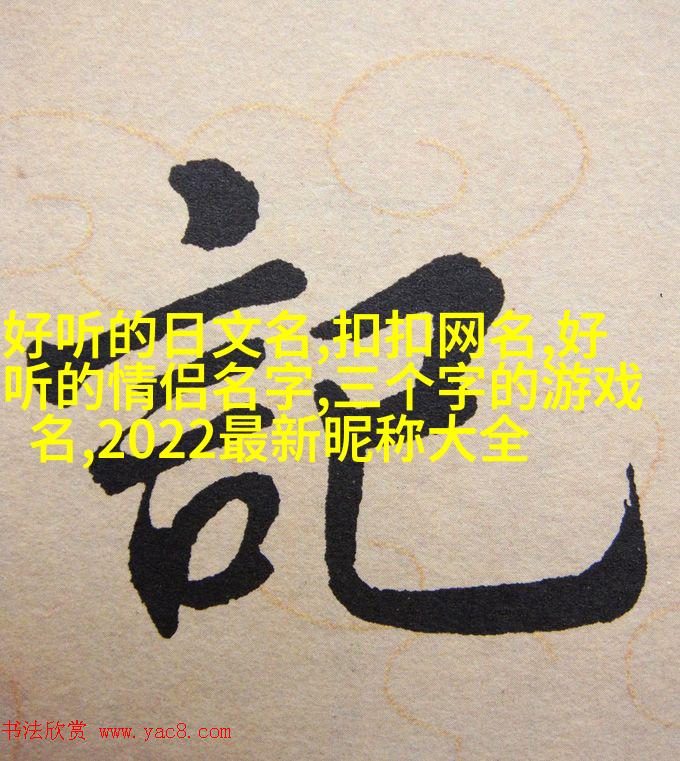 記
好听的日文名,扣扣网名,好
听的情侣名字,三个字的游戏
名,2022最新昵称大全
书法欣赏 www.yac8.com